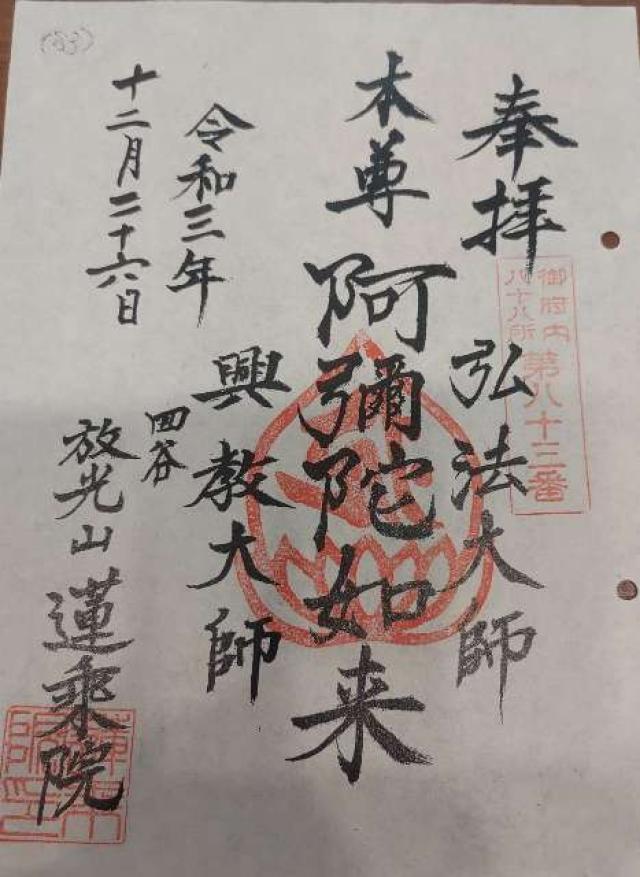 (83)
奉拝
御府内
八十八所
第八十三番
弘法大師
本尊 阿彌陀如来
興教大師
令和三年
十二月二十六日
四谷
放光山 蓮乗院